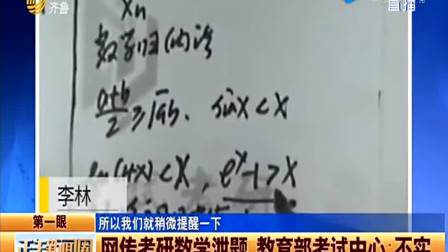 齐鲁
直播
xₙ
数学归纳法
a+b/2≥√ab, sinx<x
ln(1+x)<x, eˣ-1>x
李林
第一眼
所以我们就稍微提醒一下
网传考研数学泄题 教育部考试中心:不实